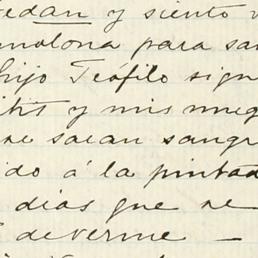 edan y siento
molona para sa
hijo Teófilo sigu
itis y mis mueg
me sacan sangr
ido á la pintad
dias que se
deverme —